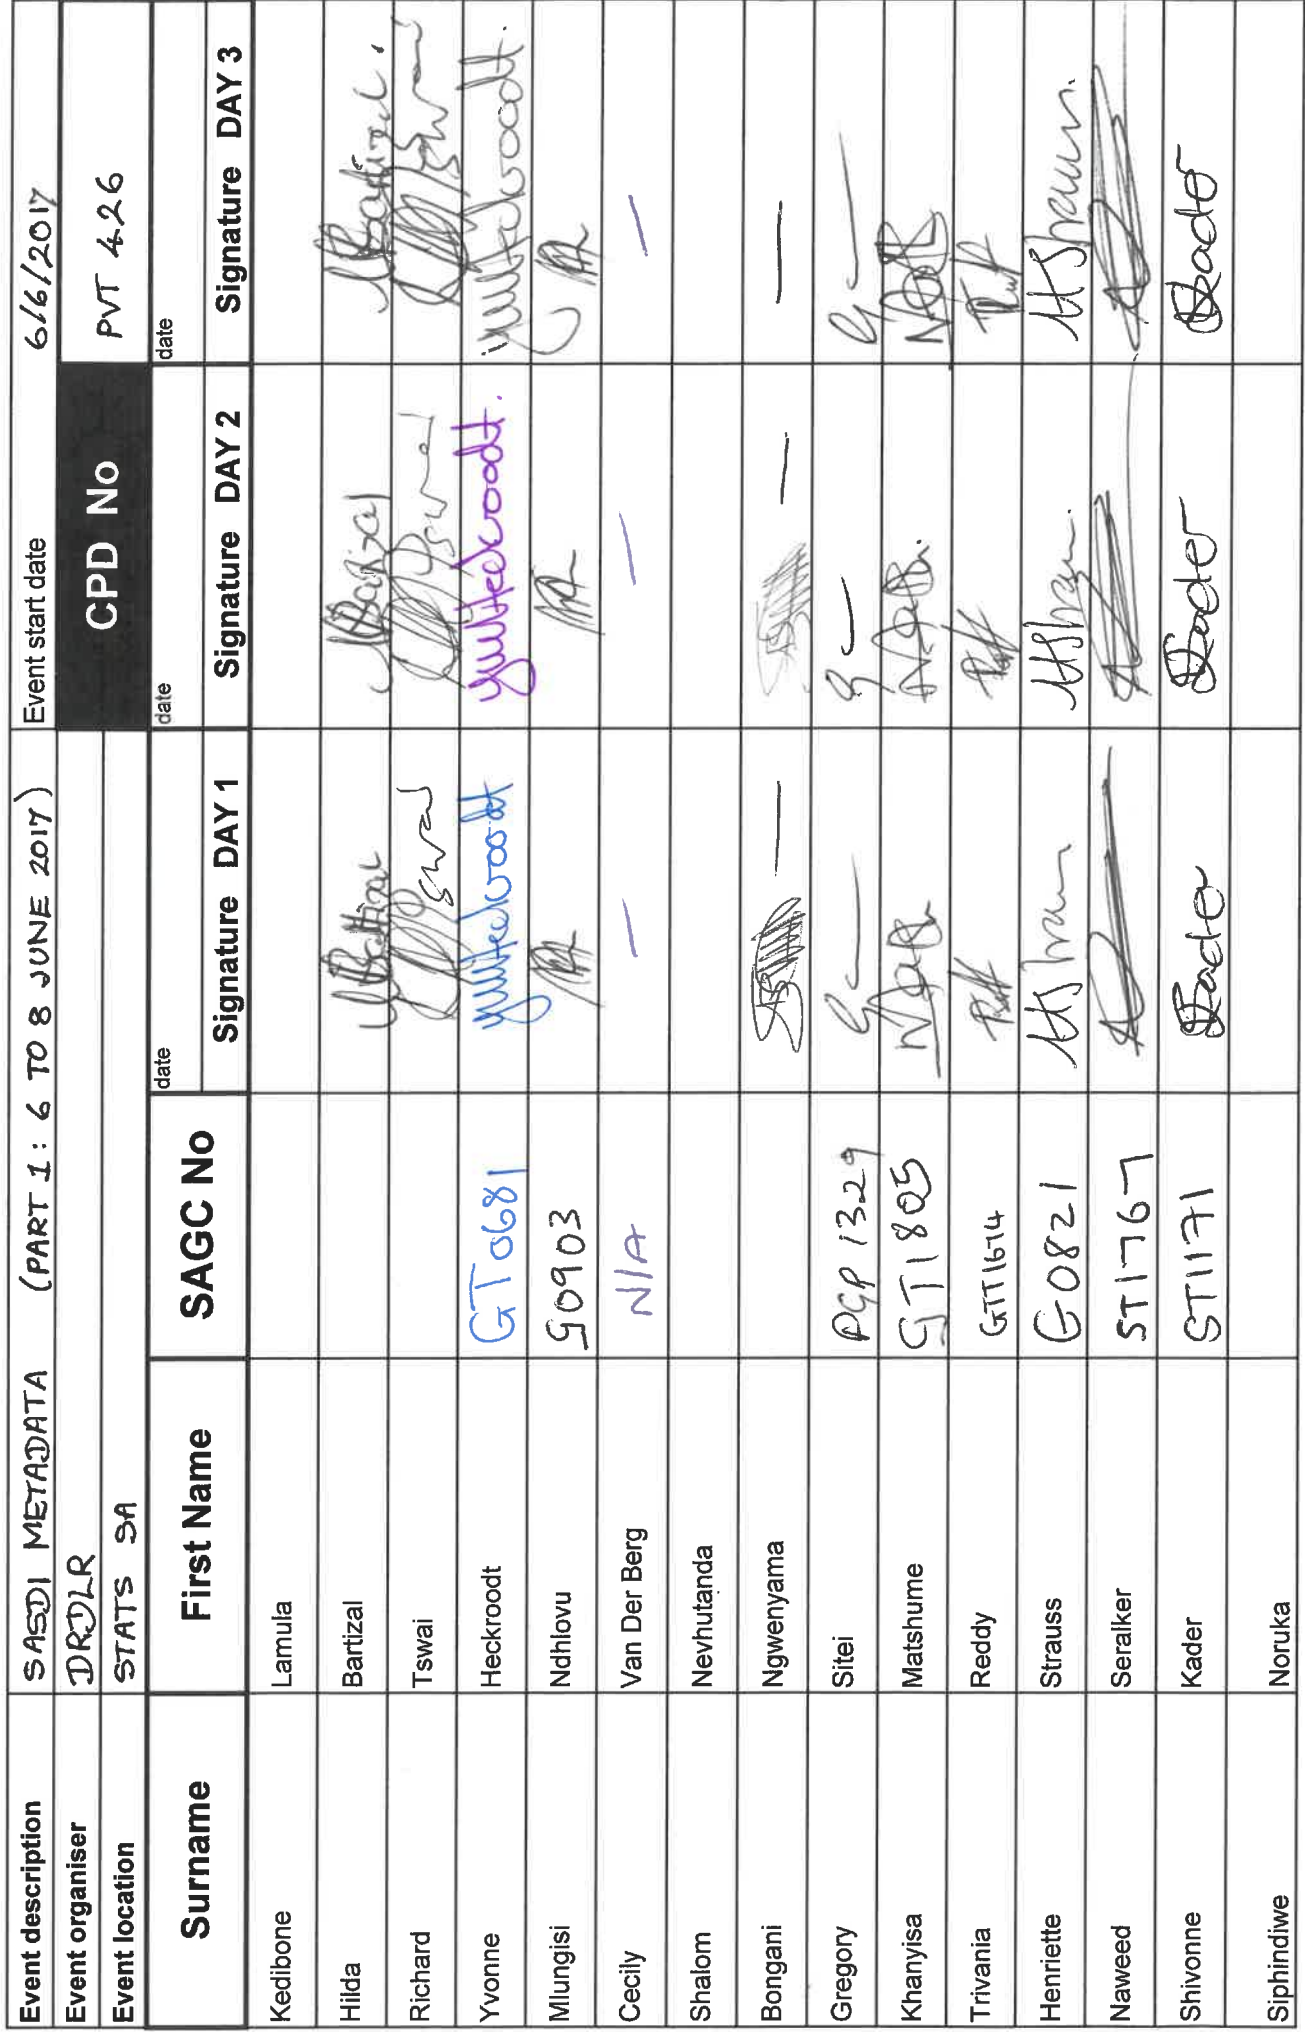 Event description SASDI METADATA (PART 1: 6 TO 8 JUNE 2017) Event start date 6/6/2017
Event organiser DRDLR CPD No PVT 426
Event location STATS SA
Surname First Name SAGC No date Signature DAY 1 date Signature DAY 2 date Signature DAY 3
Kedibone Lamula
Hilda Bartizal
Richard Tswai
Yvonne Heckroodt GT0681
Mlungisi Ndhlovu G0903
Cecily Van Der Berg N/A — — —
Shalom Nevhutanda
Bongani Ngwenyama — — —
Gregory Sitei PGP 1329
Khanyisa Matshume GT1805
Trivania Reddy GTT1614
Henriette Strauss G0821
Naweed Seralker ST1767
Shivonne Kader ST1171 Kader Kader Kader
Siphindiwe Noruka